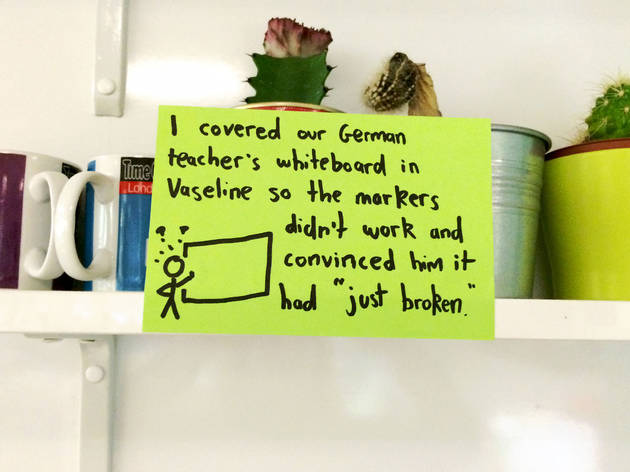 Time
Lond
I covered our German
teacher's whiteboard in
Vaseline so the markers
didn't work and
convinced him it
had "just broken."
? ?